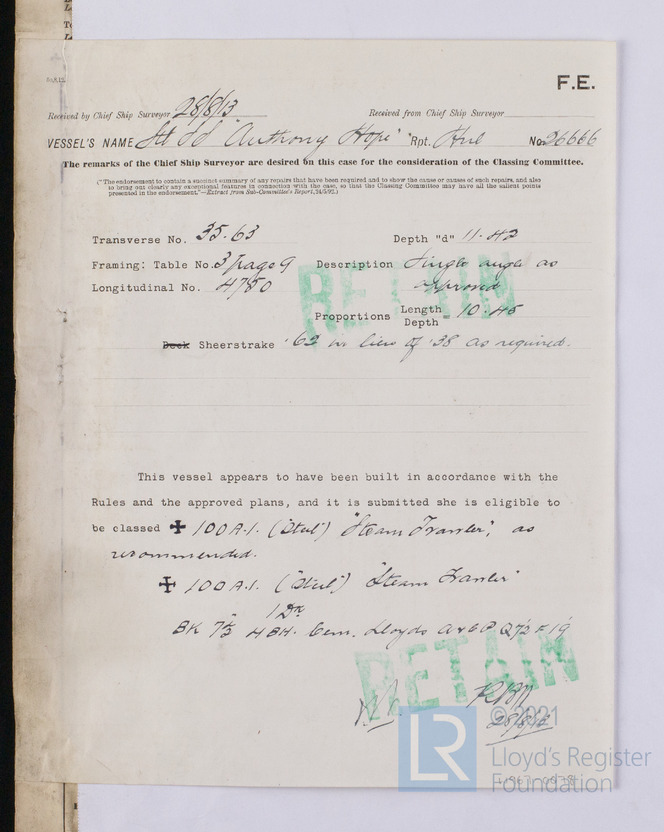 F.E.
Received by Chief Ship Surveyor 28/8/13 Received from Chief Ship Surveyor
VESSEL'S NAME "Anthony Hope" Rpt. Hul No. 26666
The remarks of the Chief Ship Surveyor are desired on this case for the consideration of the Classing Committee.
("The endorsement to contain a succinct summary of any repairs that have been required and to show the cause or causes of such repairs, and also
to bring out clearly any exceptional features in connection with the case, so that the Classing Committee may have all the salient points
presented in the endorsement."—Extract from Sub-Committee's Report, 24/5/92.)
Transverse No. 35.63 Depth "d" 11.42
Framing: Table No. 3 page 9 Description Single angle as
Longitudinal No. 4750 approved
RETAIN
Proportions Length Depth 10.45
Deck Sheerstrake .62 in lieu of .38 as required.
This vessel appears to have been built in accordance with the
Rules and the approved plans, and it is submitted she is eligible to
be classed ✠ 100A.1. (Steel) "Steam Trawler", as
recommended.
✠ 100A.1. (Steel) "Steam Trawler"
1 Dk
BK 7½ 4BH. Cem. Lloyds A&CP
RETAIN
28/8/13
© 2021
LR
Lloyd's Register
Foundation